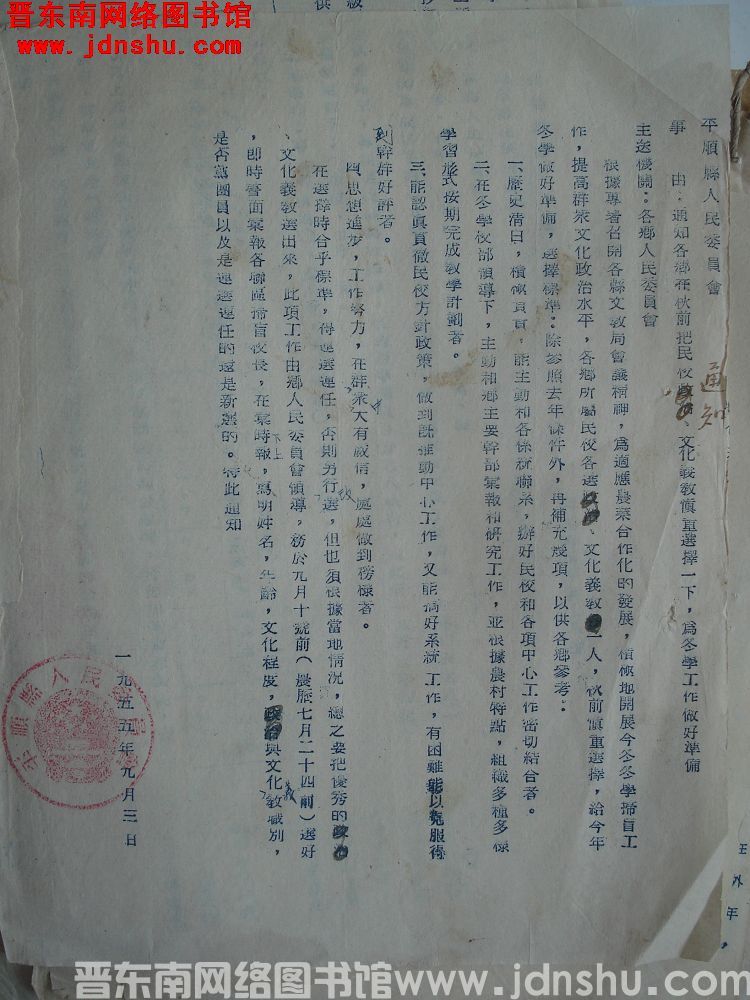 晋东南网络图书馆
www.jdnshu.com
平順縣人民委員會
通知
事 由:通知各鄉在秋前把民校、文化義教慎重選擇一下,為冬學工作做好準備
主送機關:各鄉人民委員會
根據專署召開各縣文教局會議精神,為適應農業合作化的發展,積極地開展今冬冬學掃盲工
作,提高群衆文化政治水平,各鄉所屬民校各選、文化義教一人,秋前慎重選擇,給今年
冬學做好準備,選擇標準:除參照去年條件外,再補充幾項,以供各鄉參考。
一、歷史清白,積極負責,能主動和各係統聯系,辦好民校和各項中心工作密切結合者。
二、在冬學校部領導下,主動和鄉主要幹部彙報和研究工作,並根據農村特點,組織多種多樣
學習形式按期完成教學計劃者。
三、能認真貫徹民校方針政策,做到既推動中心工作,又能搞好系統工作,有困難能以克服得
到幹群好評者。
四、思想進步,工作努力,在群衆中大有威信,處處做到榜樣者。
在選擇時合乎標準,得連選連任,否則另行改選,但也須根據當地情況,總之要把優秀的政治
、文化義教選出來,此項工作由鄉人民委員會領導,務於九月十號前(農歷七月二十四前)選好
,即時書面彙報各聯區掃盲校長,在彙報時上,寫明姓名,年齡,文化程度,政治與文化教職別,
是否黨團員以及是連選連任的還是新選的。特此通知
一九五五年九月三日
平順縣人民委員會
五外年,
晋东南网络图书馆www.jdnshu.com